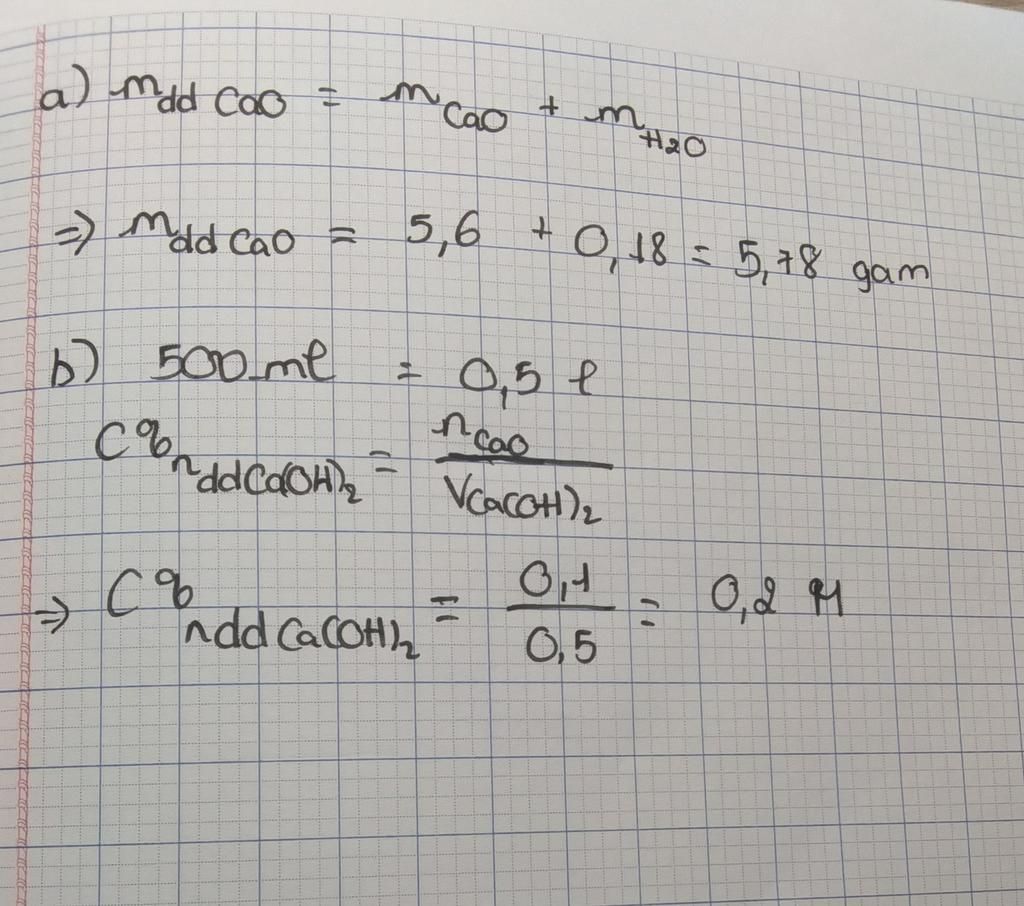 a) mdd CaO = mCaO + mH2O
=> mdd CaO = 5,6 + 0,18 = 5,78 gam
b) 500 ml = 0,5 l
C%n dd Ca(OH)2 = nCaO / VCa(OH)2
=> C%n dd Ca(OH)2 = 0,1 / 0,5 = 0,2 M